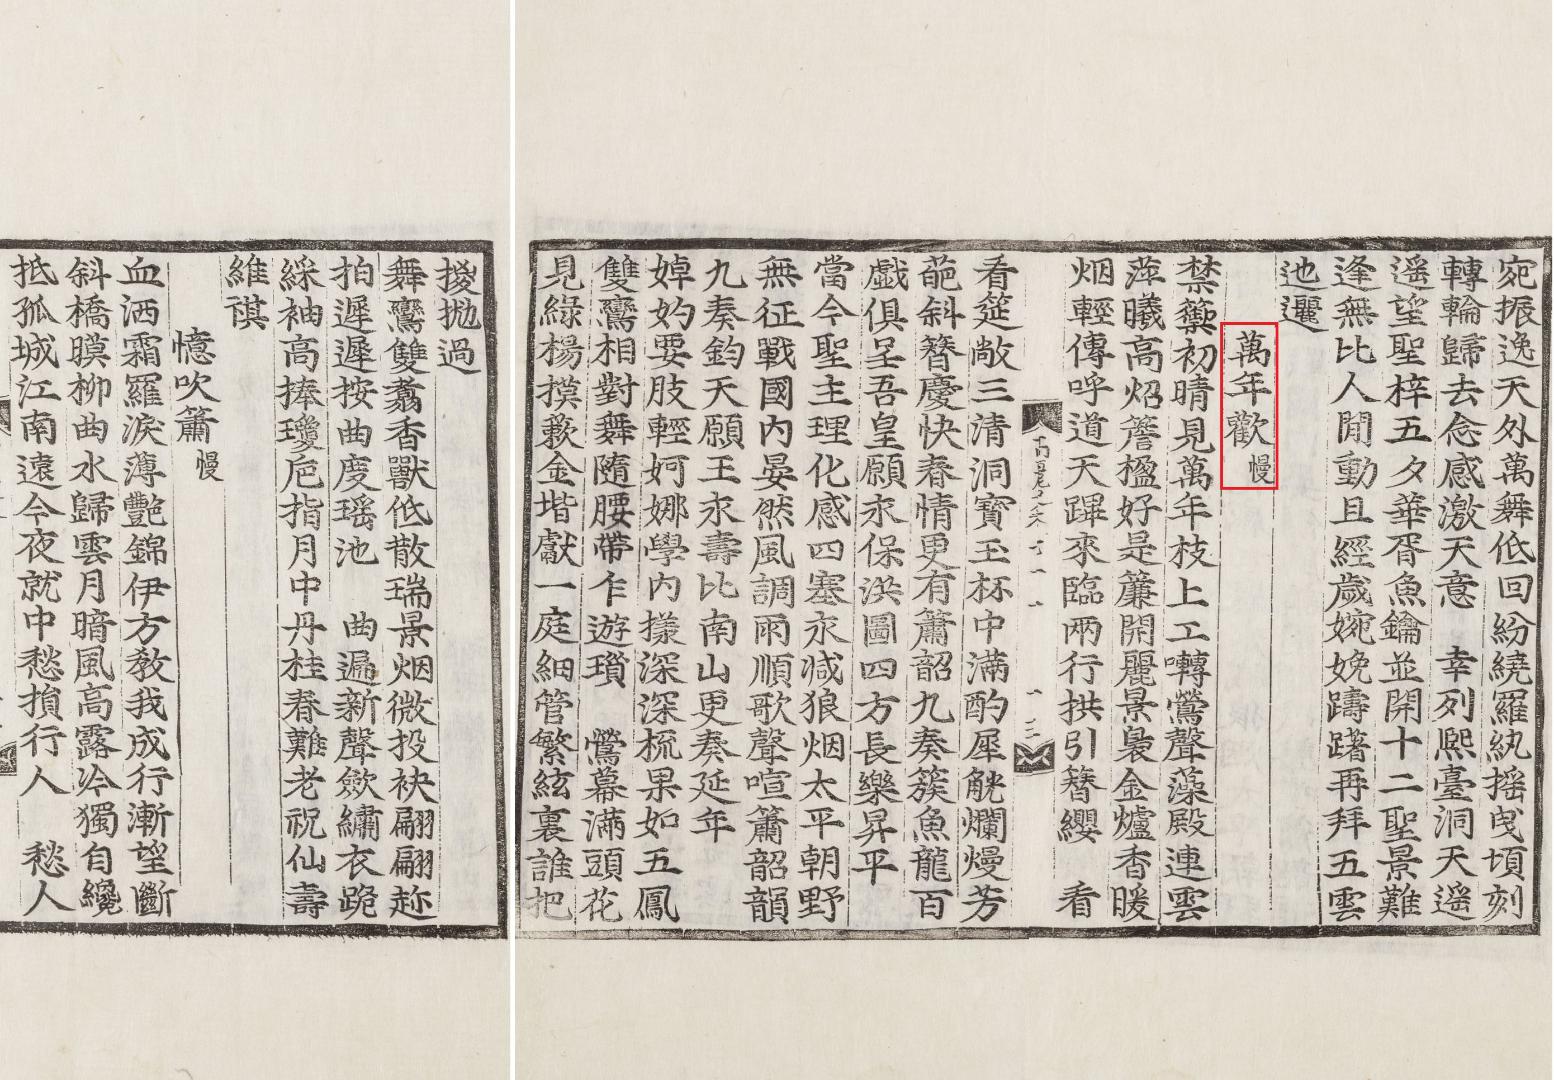 宛振逸天外萬舞低回紛繞羅紈揺曳頃刻
轉輪歸去念感激天意 幸列熈臺洞天遥
遥望聖梓五夕華胥魚鑰並開十二聖景難
逢無比人間動且經歲婉娩躊躇再拜五雲
迆邐
萬年歡慢
禁籞初晴見萬年枝上工囀鶯聲藻殿連雲
萍曦高炤簷楹好是簾開麗景裊金爐香暖
烟輕傳呼道天蹕來臨兩行拱引簪纓 看
看筵敞三清洞寶玉杯中滿酌犀觥爛熳芳
葩斜簪慶快春情更有簫韶九奏簇魚龍百
戲俱呈吾皇願永保洪圖四方長樂昇平
當今聖主理化感四塞永减狼烟太平朝野
無征戰國内晏然風調雨順歌聲喧簫韶韻
九奏鈞天願王永壽比南山更奏延年
婥妁要肢輕婀娜學内㨾深深梳果如五鳳
雙鸞相對舞隨腰帶乍遊瑣 鶯幕滿頭花
見綠楊摸蔌金堦獻一庭細管繁絃裏誰把
捘拋過
舞鸞雙翥香獸低散瑞景烟微投袂翩翩趂
拍遲遲按曲度瑶池 曲遍新聲歛繡衣跪
綵袖高捧瓊巵指月中丹桂春難老祝仙壽
維祺
憶吹簫慢
血洒霜羅淚薄艷錦伊方教我成行漸望斷
斜橋暯柳曲水歸雲月暗風高露冷獨自纔
抵孤城江南遠今夜就中愁損行人 愁人